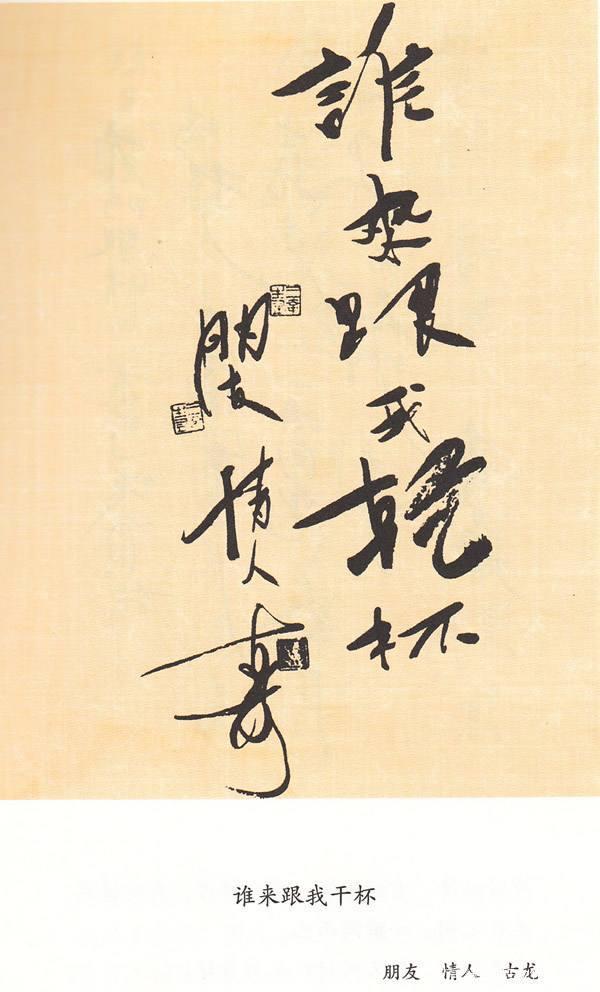 誰来跟我乾杯
朋友
情人
谁来跟我干杯
朋友 情人 古龙